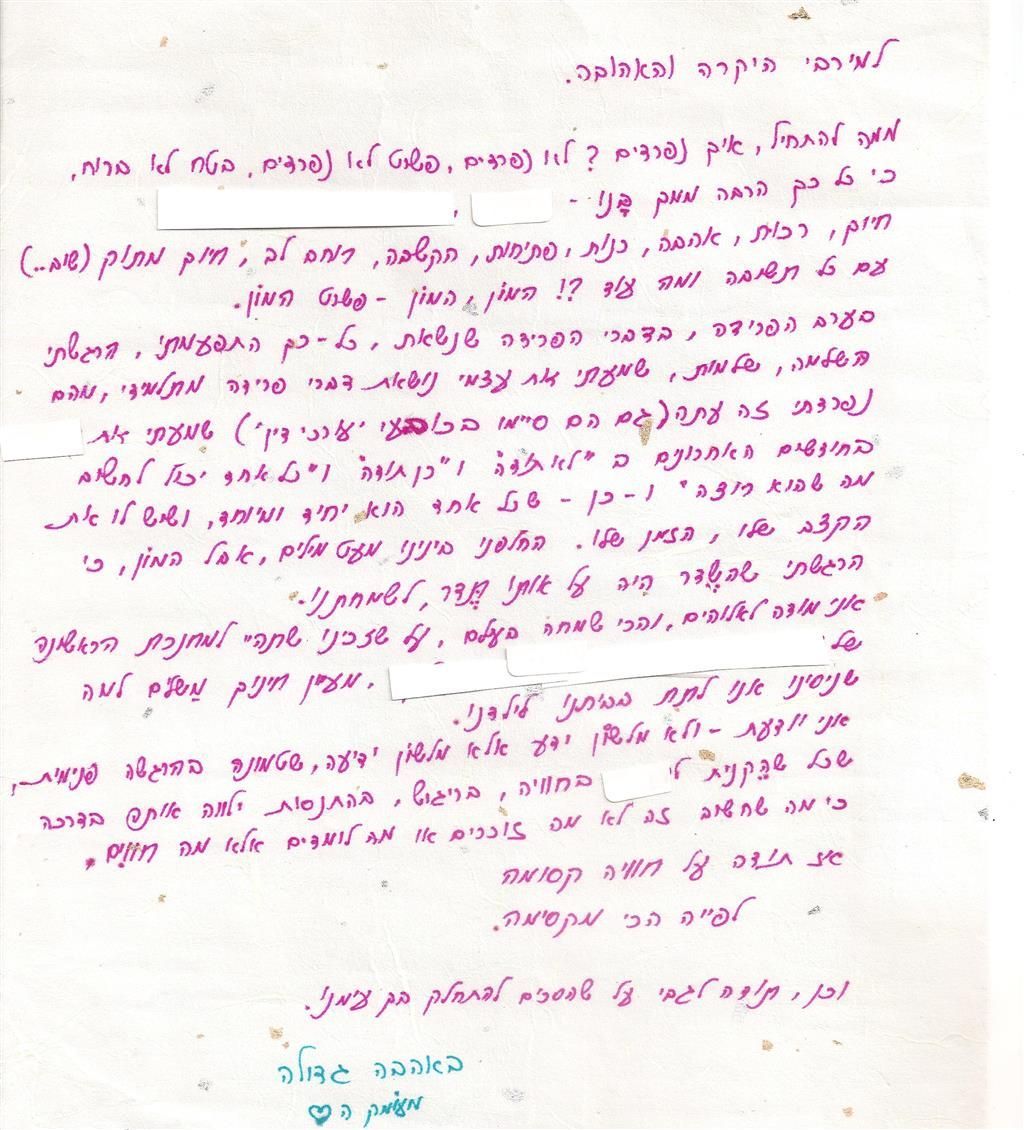 למירבי היקרה והאהובה.
ממה להתחיל, איך נפרדים? לא נפרדים, פשוט לא נפרדים, בטח לא ברוח,
כי כל כך הרבה ממך בָּנו -
חיוך, רכות, אהבה, כנות, פתיחות, הקשבה, רוחב לב, חיוך מתוק (שוב..)
עם כל תשובה ומה עוד?! המון, המון - פשוט המון.
בערב הפרידה, בדברי הפרידה שנשאת, כל-כך התפעמתי, הרגשתי
השלמה, שלמות, שמעתי את עצמי נושאת דברי פרידה מתלמידי, מהם
נפרדתי זה עתה (גם הם סיימו בכובעי "עורכי דין") שמעתי את
בחודשים האחרונים ב "לא תודה" ו"כן תודה" ו"כל אחד יכול לחשוב
מה שהוא רוצה" ו-כן - שכל אחד הוא יחיד ומיוחד, ושיש לו את
הקצב שלו, הזמן שלו. החלפנו בינינו מעט מילים, אבל המון, כי
הרגשתי שהשֶׁדר היה על אותו תֶּדר, לשמחתנו.
אני מודה לאלוהים, והכי שמחה בעולם, על שזכינו שתהיי למחנכת הראשונה
של
, מעיין חינוך מַשלים למה
שניסינו אנו לתת בביתנו לילדנו.
אני יודעת - ולא מלשון ידע אלא מלשון ידיעה, שטמונה בהרגשה פנימית,
שכל שהקנית ל בחוויה, בריגוש, בהתנסות ילווה אותם בדרכה
כי מה שחשוב זה לא מה זוכרים או מה לומדים אלא מה חווים.
אז תודה על חוויה קסומה
לפייה הכי מקסימה.
וכן, תודה לגבי על שהסכים להתחלק בך עימנו.
באהבה גדולה
מעומק ה♡